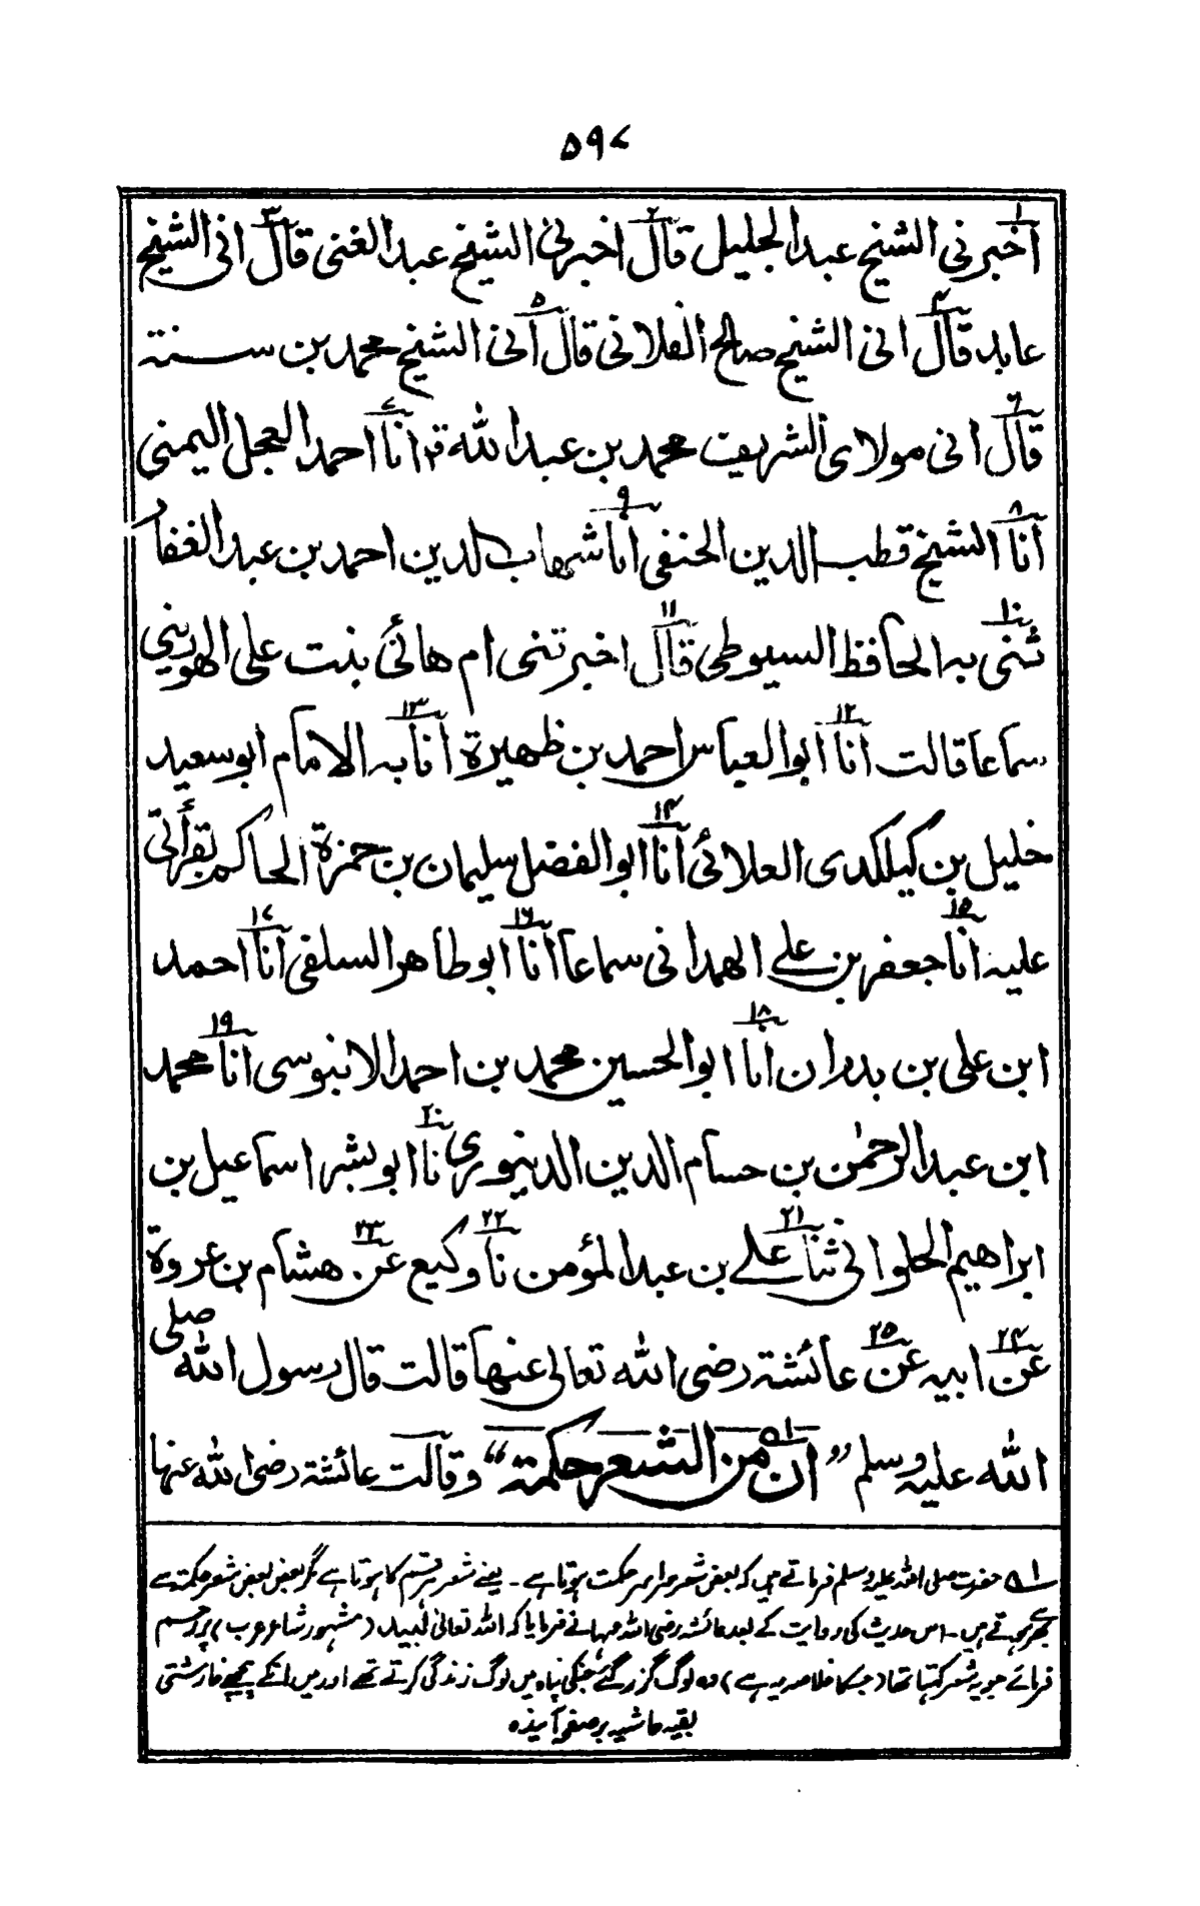 ۵۹۷
اخبرنی الشیخ عبد الجلیل قال اخبرنی الشیخ عبد الغنی قال انی الشیخ
عابد قال انی الشیخ صالح الفلانی قال انی الشیخ محمد بن سنتہ
قال انی مولای الشریف محمد بن عبد اللہ قہ انا احمد العجل الیمنی
انا الشیخ قطب الدین الحنفی انا شھاب الدین احمد بن عبد الغفار
ثنی بہ الحافظ السیوطی قال اخبرتنی ام ھانئ بنت علی الھورینی
سماعا قالت انا ابو العباس احمد بن ظھیرۃ انا بہ الامام ابو سعید
خلیل بن کیلکدی العلائی انا ابو الفضل سلیمان بن حمزۃ الحاکم بقرأتی
علیہ انا جعفر بن علی الھمدانی سماعا انا ابو طاھر السلفی انا احمد
ابن علی بن بدران انا ابو الحسین محمد بن احمد الانبوسی انا محمد
ابن عبد الرحمٰن بن حسام الدین الدینوری نا ابو بشر اسماعیل بن
ابراھیم الحلوانی ثنا علی بن عبد المؤمن نا وکیع عن ھشام بن عروۃ
عن ابیہ عن عائشۃ رضی اللہ تعالی عنھا قالت قال رسول اللہ صلی
اللہ علیہ وسلم ” ان من الشعر حکمۃ “ وقالت عائشۃ رضی اللہ عنہا
۱ھ حضرت صلی اللہ علیہ وسلم فرماتے ہیں کہ بعض شعر سراسر حکمت ہوتا ہے ۔ یعنے شعر ہر قسم کا ہوتا ہے مگر بعض بعض شعر حکمت سے
بھرے ہوتے ہیں ۔ اس حدیث کی روایت کے بعد عائشہ رضی اللہ عنہا نے فرمایا کہ اللہ تعالیٰ لبید (مشہور شاعر عرب) پر رحم
فرمائے جو یہ شعر کہتا تھا (جسکا خلاصہ یہ ہے) وہ لوگ گزر گئے جنکی پناہ میں لوگ زندگی کرتے تھے اور میں انکے پیچھے خارشتی
بقیہ حاشیہ بر صفحہ آیندہ